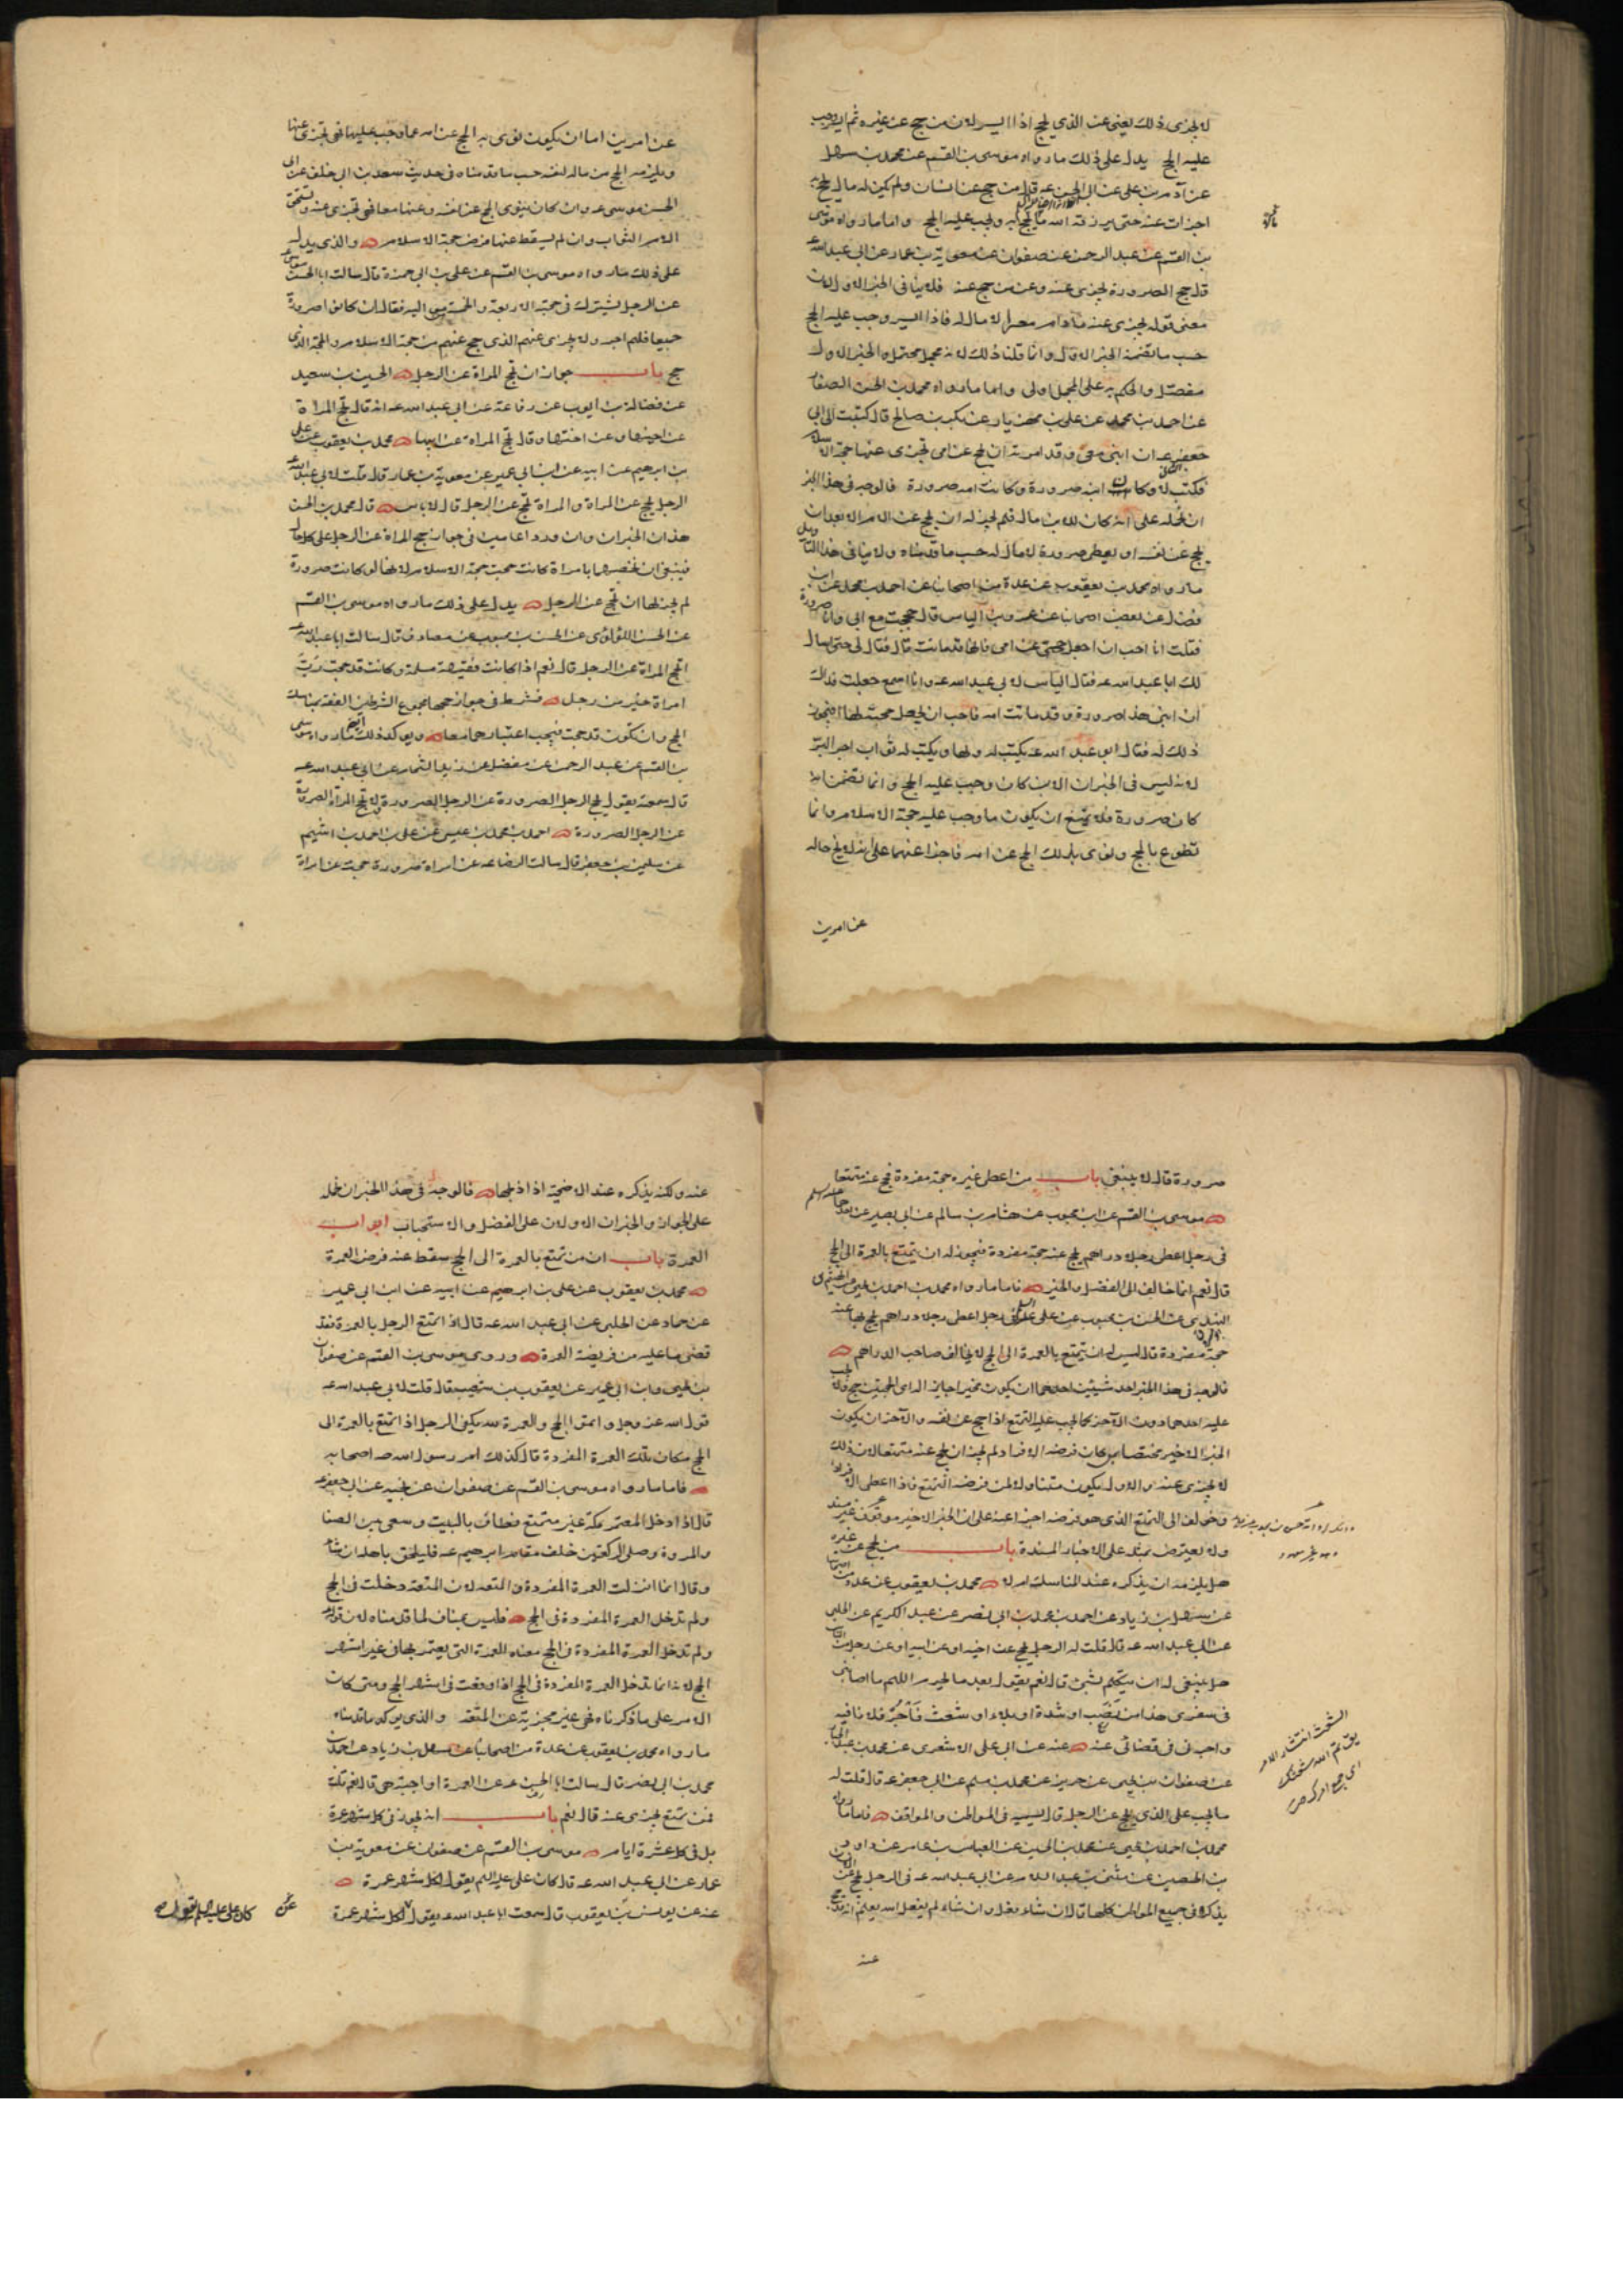 لا يجزي ذلك يعني عن الذي يحج اذا ايسر لان من حج عن غيره ثم ايسر وجب
عليه الحج يدل على ذلك ما رواه موسى بن القسم عن محمد بن سهل
عن آدم بن علي عن ابي الحسن عه قال من حج عن انسان ولم يكن له مال يحج به
اجزات عنه حتى يرزقه الله ما يحج به ويجب عليه الحج واما ما رواه موسى
بن القسم عن عبد الرحمن عن صفوان عن معوية بن عمار عن ابي عبد الله عه
قال حج الصرورة يجزي عنه وعن من حج عنه فلا ينافي الخبر الاول لان
معنى قوله يجزي عنه ما دام معسرا لا مال له فاذا ايسر وجب عليه الحج
حسب ما تضمنه الخبر الاول وانما قلنا ذلك لانه مجمل محتمل والخبر الاول
مفصل والحكم به على المجمل اولى واما ما رواه محمد بن الحسن الصفار
عن احمد بن محمد عن علي بن مهزيار عن بكر بن صالح قال كتبت الى ابي
جعفر عه ان ابني معي وقد امرته ان يحج عن امي تجزي عنها حجة الاسلام
فكتب لا وكان ابنه صرورة وكانت امه صرورة فالوجه في هذا الخبر
ان نحمله على انه كان للابن مال فلم يجز له ان يحج عن الام الا بعد ان
يحج عن نفسه او يعطى صرورة لا مال له حسب ما قدمناه ولا ينافي هذا التاويل
ما رواه محمد بن يعقوب عن عدة من اصحابنا عن احمد بن محمد عن ابن
فضال عن بعض اصحابنا عن عمرو بن الياس قال حججت مع ابي وانا صرورة
فقلت انا احب ان اجعل حجتي عن امي فانها قد ماتت قال فقال لي حتى اسال
لك ابا عبد الله عه فقال الياس لابي عبد الله عه وانا اسمع جعلت فداك
ان ابني هذا صرورة وقد ماتت امه فاحب ان يجعل حجته لها افيجوز
ذلك له فقال ابو عبد الله عه يكتب له ولها ويكتب له ثواب اجر البر
لانه ليس في الخبر ان الابن كان وجب عليه الحج وانما تضمن انه
كان صرورة فلا يمتنع ان يكون ما وجب عليه حجة الاسلام وانما
تطوع بالحج ونوى بذلك الحج عن امه فاجزا عنهما على انه لا يخ حاله
عن امرين
عن امرين اما ان يكون نوى به الحج عن امه عما وجب عليها فهي تجزي عنها
ويلزمه الحج من ماله لنفسه حسب ما قدمناه في حديث سعد بن ابي خلف عن ابي
الحسن موسى عه وان كان ينوي الحج عن نفسه وعنها معا فهي تجزي عنه وتستحق
الام الثواب وان لم يسقط عنها فرض حجة الاسلام والذي يدل
على ذلك ما رواه موسى بن القسم عن علي بن ابي حمزة قال سالت ابا الحسن موسى عه
عن الرجل يشرك في حجته الاربعة والخمسة من مواليه فقال ان كانوا صرورة
جميعا فلهم اجر ولا يجزي عنهم الذي حج عنهم من حجة الاسلام والحجة للذي
حج باب جواز ان تحج المراة عن الرجل الحسين بن سعيد
عن فضالة بن ايوب عن رفاعة عن ابي عبد الله عه انه قال تحج المراة
عن اخيها وعن اختها وقال تحج المراة عن ابيها محمد بن يعقوب عن علي
بن ابرهيم عن ابيه عن ابن ابي عمير عن معوية بن عمار قال قلت لابي عبد الله عه
الرجل يحج عن المراة والمراة تحج عن الرجل قال لا باس قال محمد بن الحسن
هذان الخبران وان وردا عامين في جواز حج المراة عن الرجل على كل حال
فينبغي ان نخصهما بامراة كانت حجت حجة الاسلام لانها لو كانت صرورة
لم يجز لها ان تحج عن الرجل يدل على ذلك ما رواه موسى بن القسم
عن الحسن اللؤلؤي عن الحسن بن محبوب عن مصادف قال سالت ابا عبد الله عه
اتحج المراة عن الرجل قال نعم اذا كانت فقيهة مسلمة وكانت قد حجت رب
امراة خير من رجل فشرط في جواز حجها مجموع الشرطين الفقه بمناسك
الحج وان تكون قد حجت فيجب اعتبارهما معا ويوكد ذلك ايض ما رواه موسى
بن القسم عن عبد الرحمن عن مفضل عن زيد الشحام عن ابي عبد الله عه
قال سمعته يقول يحج الرجل الصرورة عن الرجل الصرورة ولا تحج المراة الصرورة
عن الرجل الصرورة احمد بن محمد بن عيسى عن علي بن احمد بن اشيم
عن سليمن بن جعفر قال سالت الرضا عه عن امراة صرورة حجت عن امراة
صرورة قال لا ينبغي باب من اعطى غيره حجة مفردة فحج عنه متمتعا
موسى بن القسم عن ابن محبوب عن هشام بن سالم عن ابي بصير عن احدهما عليهما السلم
في رجل اعطى رجلا دراهم يحج عنه حجة مفردة فيجوز له ان يتمتع بالعمرة الى الحج
قال نعم انما خالف الى الفضل والخير فاما ما رواه محمد بن احمد بن يحيى عن الهيثم
النهدي عن الحسن بن محبوب عن علي عه في رجل اعطى رجلا دراهم يحج بها عنه
حجة مفردة قال ليس له ان يتمتع بالعمرة الى الحج لا يخالف صاحب الدراهم
فالوجه في هذا الخبر احد شيئين احدهما ان يكون مخيرا جايزا له اي الحجتين حج ولا يجب
عليه احدهما دون الآخر كما يجب عليه التمتع اذا حج عن نفسه والآخر ان يكون
الخبر الاخير مختصا بمن كان فرضه الافراد لم يجز ان يحج عنه متمتعا لان ذلك
لا يجزي عنه والاول يكون متناولا لمن فرضه التمتع فاذا اعطى الافراد
وخولف الى التمتع الذي هو فرضه اجزا عنه على ان الخبر الاخير موقوف غير مسند
ولا يعترض بمثله على الاخبار المسندة باب من يحج عن غيره
هل يلزمه ان يذكره عند المناسك ام لا محمد بن يعقوب عن عدة من اصحابنا
عن سهل بن زياد عن احمد بن محمد بن ابي نصر عن عبد الكريم عن الحلبي
عن ابي عبد الله عه قال قلت له الرجل يحج عن اخيه او عن ابيه او عن رجل من الناس
هل ينبغي له ان يتكلم بشيء قال نعم يقول بعد ما يحرم اللهم ما اصابني
في سفري هذا من نصب او شدة او بلاء او شعث فاجر فلانا فيه
واجرني في قضائي عنه عنه عن ابي علي الاشعري عن محمد بن عبد الجبار
عن صفوان بن يحيى عن حريز عن محمد بن مسلم عن ابي جعفر عه قال قلت له
ما يجب على الذي يحج عن الرجل قال يسميه في المواطن والمواقف فاما ما رواه
محمد بن احمد بن يحيى عن محمد بن الحسين عن العباس بن عامر عن داود
بن الحصين عن مثنى بن عبد السلام عن ابي عبد الله عه في الرجل يحج عن الانسان
يذكره في جميع المواطن كلها قال ان شاء فعل وان شاء لم يفعل الله يعلم انه قد حج
عنه
الشعث انتشار الامر
يق لم الله شعثك
اي جمع امرك
عنه ولكنه يذكره عند الاضحية اذا ذبحها فالوجه في هذا الخبر ان نحمله
على الجواز والخبران الاولان على الفضل والاستحباب ابواب
العمرة باب ان من تمتع بالعمرة الى الحج سقط عنه فرض العمرة
محمد بن يعقوب عن علي بن ابرهيم عن ابيه عن ابن ابي عمير
عن حماد عن الحلبي عن ابي عبد الله عه قال اذا تمتع الرجل بالعمرة فقد
قضى ما عليه من فريضة العمرة وروى موسى بن القسم عن صفوان
بن يحيى وابن ابي عمير عن يعقوب بن شعيب قال قلت لابي عبد الله عه
قول الله عز وجل واتموا الحج والعمرة لله يكفي الرجل اذا تمتع بالعمرة الى
الحج مكان تلك العمرة المفردة قال كذلك امر رسول الله صه اصحابه
فاما ما رواه موسى بن القسم عن صفوان عن نجية عن ابي جعفر عه
قال اذا دخل المعتمر مكة غير متمتع فطاف بالبيت وسعى بين الصفا
والمروة وصلى الركعتين خلف مقام ابرهيم عه فليلحق باهله ان شاء
وقال انما انزلت العمرة المفردة والمتعة لان المتعة دخلت في الحج
ولم تدخل العمرة المفردة في الحج فليس بمناف لما قدمناه لان قوله
ولم تدخل العمرة المفردة في الحج معناه العمرة التي يعتمر بها في غير اشهر
الحج لانه انما تدخل العمرة المفردة في الحج اذا وقعت في اشهر الحج ومتى كان
الامر على ما ذكرناه فهي غير مجزية عن المتعة والذي يوكد ما قدمناه
ما رواه محمد بن يعقوب عن عدة من اصحابنا عن سهل بن زياد عن احمد بن
محمد بن ابي نصر قال سالت ابا الحسن عه عن العمرة اواجبة هي قال نعم قلت
فمن تمتع يجزي عنه قال نعم باب انه يجوز في كل شهر عمرة
بل في كل عشرة ايام موسى بن القسم عن صفوان عن معوية بن
عمار عن ابي عبد الله عه قال كان علي عليه السلم يقول لكل شهر عمرة
عنه عن يونس بن يعقوب قال سمعت ابا عبد الله عه يقول لكل شهر عمرة
كان علي عليه السلم يقول صح